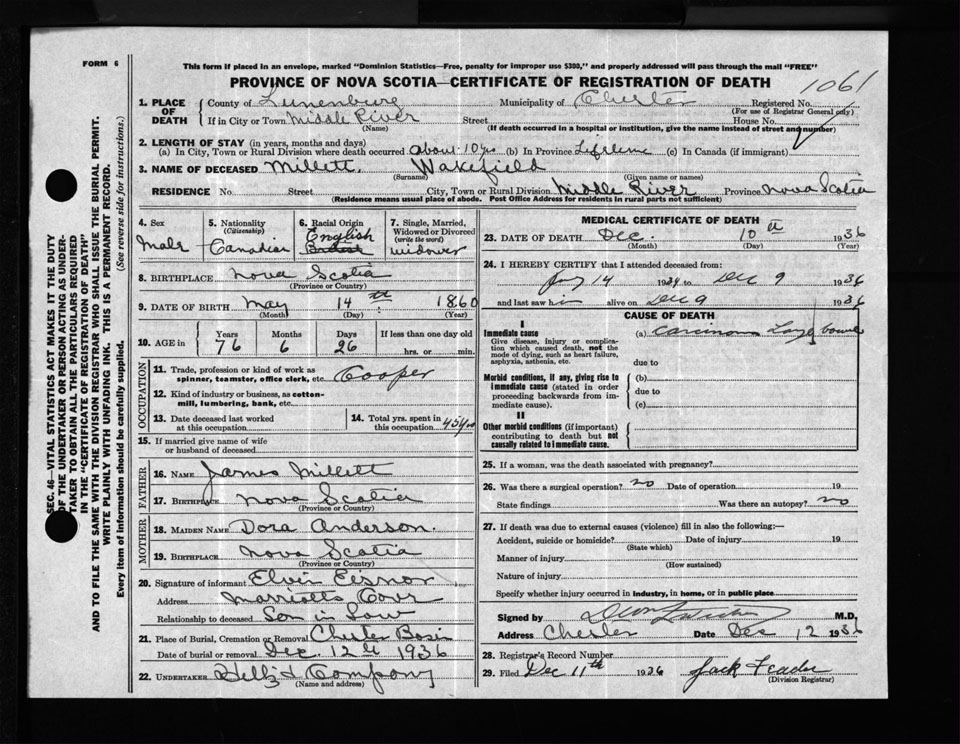 FORM 6
This form if placed in an envelope, marked "Dominion Statistics—Free, penalty for improper use $300," and properly addressed will pass through the mail "FREE"
PROVINCE OF NOVA SCOTIA—CERTIFICATE OF REGISTRATION OF DEATH
1061
1. PLACE OF DEATH
County of Lunenburg Municipality of Chester Registered No.
(For use of Registrar General only)
If in City or Town Middle River Street House No.
(Name) (If death occurred in a hospital or institution, give the name instead of street and number)
2. LENGTH OF STAY (in years, months and days)
(a) In City, Town or Rural Division where death occurred about 10 yrs (b) In Province Lifetime (c) In Canada (if immigrant)
3. NAME OF DECEASED Millett, Wakefield
(Surname) (Given name or names)
RESIDENCE No. Street City, Town or Rural Division Middle River Province Nova Scotia
(Residence means usual place of abode. Post Office Address for residents in rural parts not sufficient)
4. Sex
Male
5. Nationality
(Citizenship)
Canadian
6. Racial Origin
English
7. Single, Married, Widowed or Divorced
(write the word)
widower
8. BIRTHPLACE Nova Scotia
(Province or Country)
9. DATE OF BIRTH May 14th 1860
(Month) (Day) (Year)
10. AGE in Years Months Days If less than one day old
76 6 26 hrs. or min.
OCCUPATION
11. Trade, profession or kind of work as spinner, teamster, office clerk, etc. Cooper
12. Kind of industry or business, as cotton-mill, lumbering, bank, etc.
13. Date deceased last worked at this occupation
14. Total yrs. spent in this occupation 45 yrs
15. If married give name of wife or husband of deceased
FATHER
16. NAME James Millett
17. BIRTHPLACE Nova Scotia
(Province or Country)
MOTHER
18. MAIDEN NAME Dora Anderson.
19. BIRTHPLACE Nova Scotia
(Province or Country)
20. Signature of informant Elvin Eisnor
Address Marriotts Cove
Relationship to deceased Son in Law
21. Place of Burial, Cremation or Removal Chester Basin
Date of burial or removal Dec. 12th 1936
22. UNDERTAKER & Company
(Name and address)
MEDICAL CERTIFICATE OF DEATH
23. DATE OF DEATH Dec. 10th 1936
(Month) (Day) (Year)
24. I HEREBY CERTIFY that I attended deceased from:
14 1934 to Dec 9 1936
and last saw him alive on Dec 9 1936
CAUSE OF DEATH
I
Immediate cause (a) carcinoma Large bowel
Give disease, injury or complication which caused death, not the mode of dying, such as heart failure, asphyxia, asthenia, etc.
due to
Morbid conditions, if any, giving rise to immediate cause (stated in order proceeding backwards from immediate cause).
(b)
due to
(c)
II
Other morbid conditions (if important) contributing to death but not causally related to immediate cause.
25. If a woman, was the death associated with pregnancy?
26. Was there a surgical operation? no Date of operation 19
State findings Was there an autopsy? no
27. If death was due to external causes (violence) fill in also the following:—
Accident, suicide or homicide? Date of injury 19
(State which)
Manner of injury
(How sustained)
Nature of injury
Specify whether injury occurred in industry, in home, or in public place
Signed by M.D.
Address Chester Date Dec 12 1936
28. Registrar's Record Number
29. Filed Dec 11th 1936 Jack
(Division Registrar)
SEC. 46—VITAL STATISTICS ACT MAKES IT THE DUTY
OF THE UNDERTAKER OR PERSON ACTING AS UNDER-
TAKER TO OBTAIN ALL THE PARTICULARS REQUIRED
IN THE "CERTIFICATE OF REGISTRATION OF DEATH"
AND TO FILE THE SAME WITH THE DIVISION REGISTRAR WHO SHALL ISSUE THE BURIAL PERMIT.
WRITE PLAINLY WITH UNFADING INK. THIS IS A PERMANENT RECORD.
Every item of information should be carefully supplied. (See reverse side for instructions.)